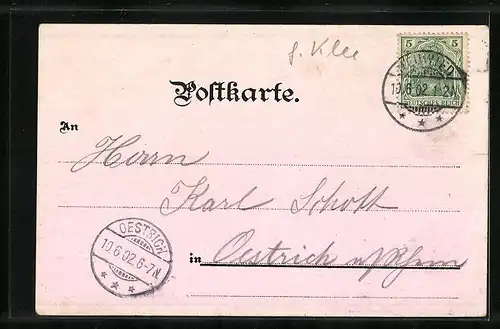 g. Klee
5 5
10.6.02.1-2N
DEUTSCHES REICH
Postkarte.
An
Herrn
Karl Schott
in Oestrich a/Rhein
OESTRICH
10.6.02.6-7N.